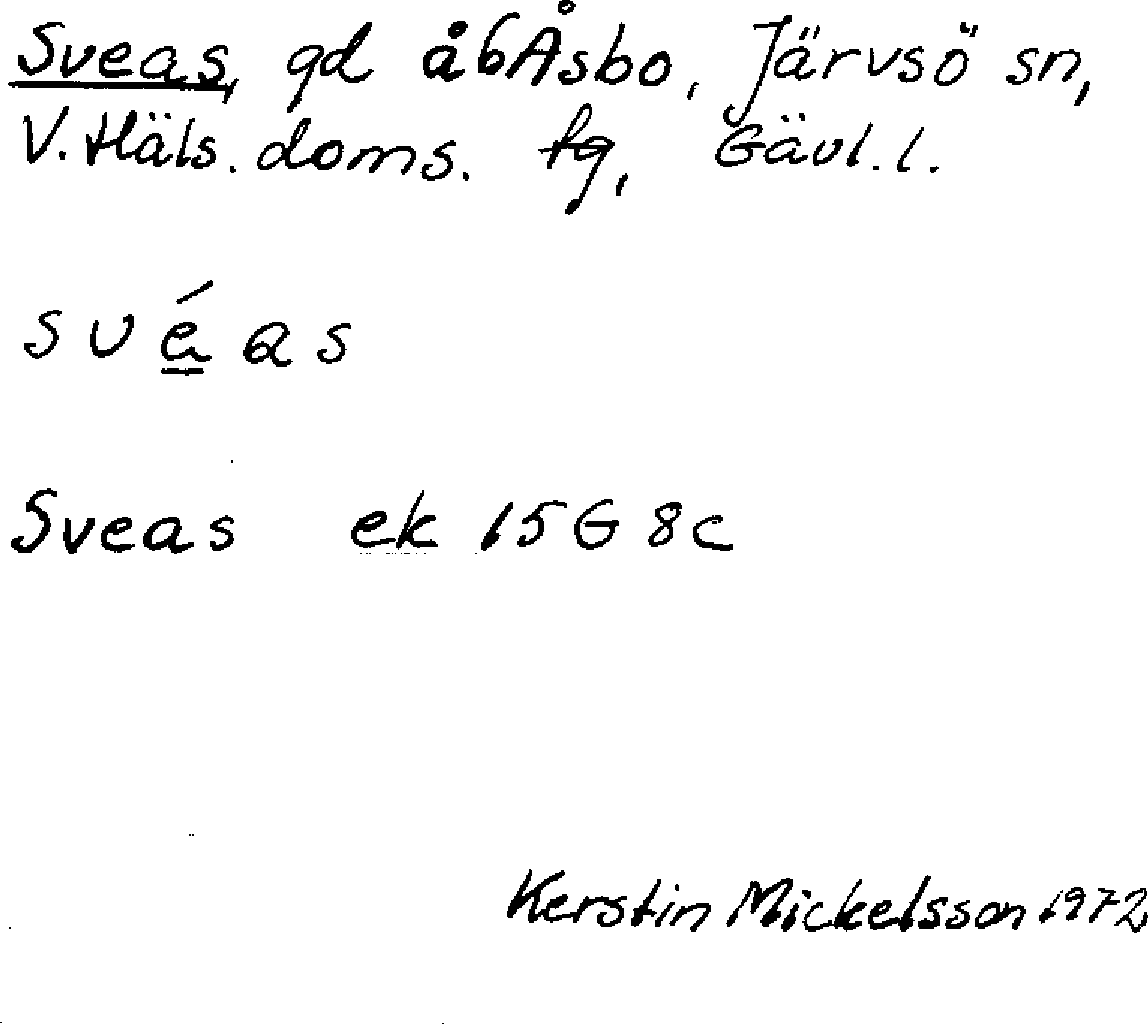 Sveas, gd å6 Åsbo, Järvsö sn,
V. Häls. doms. fg, Gävl. l.
svéas
Sveas ek 15G8c
Kerstin Mickelsson 1972